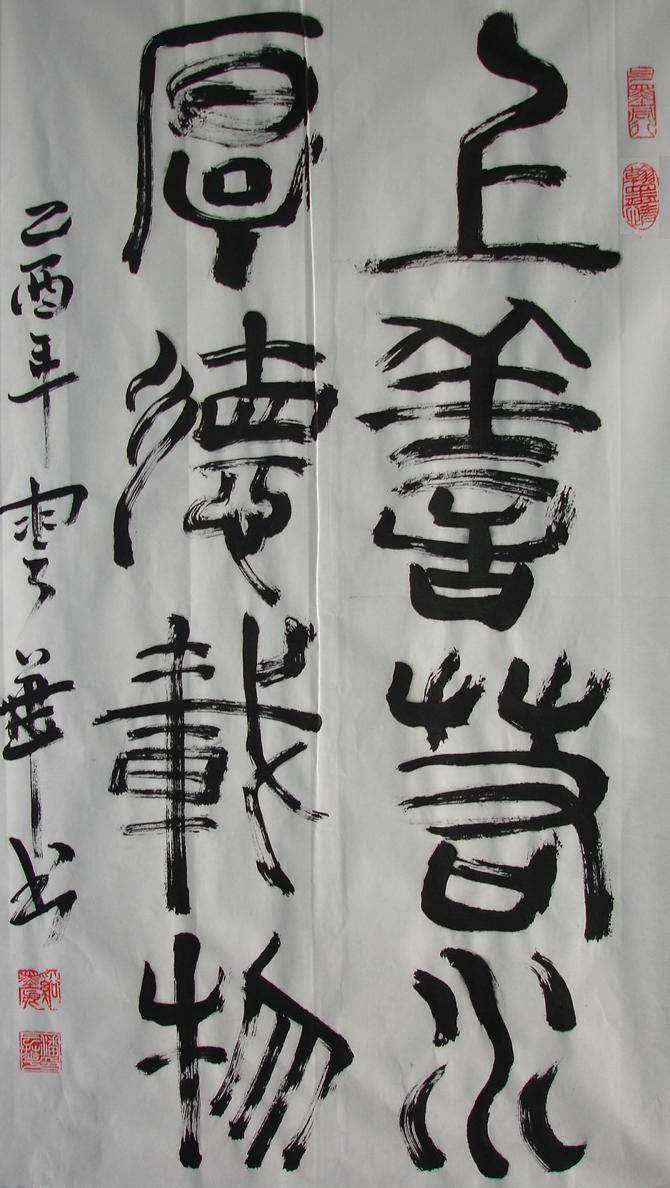 上善若水
厚德載物
乙酉年雲華书